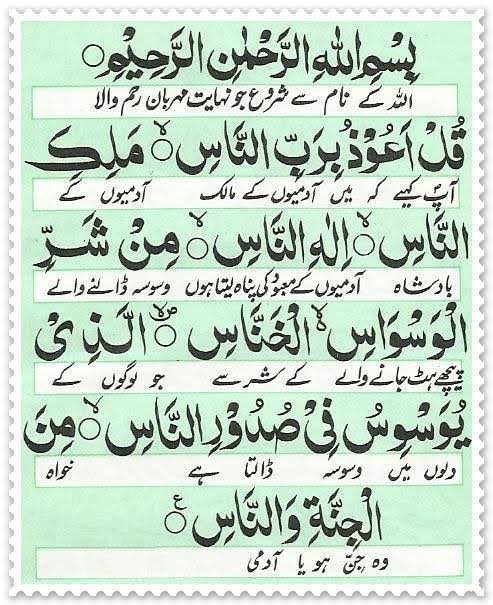 بِسْمِ اللّٰهِ الرَّحْمٰنِ الرَّحِيْمِ ○
اللہ کے نام سے شروع جو نہایت مہربان رحم والا
قُلْ اَعُوْذُ بِرَبِّ النَّاسِ ○ۙ مَلِكِ
آپؐ کہیے کہ میں آدمیوں کے مالک آدمیوں کے
النَّاسِ ○ۙ اِلٰهِ النَّاسِ ○ۙ مِنْ شَرِّ
بادشاہ آدمیوں کے معبود کی پناہ لیتا ہوں وسوسہ ڈالنے والے
الْوَسْوَاسِ ۙ الْخَنَّاسِ ○ۙ الَّذِىْ
پیچھے ہٹ جانے والے کے شر سے جو لوگوں کے
يُوَسْوِسُ فِىْ صُدُوْرِ النَّاسِ ○ۙ مِنَ
دلوں میں وسوسہ ڈالتا ہے خواہ
الْجِنَّةِ وَالنَّاسِ ○ع
وہ جِنّ ہو یا آدمی